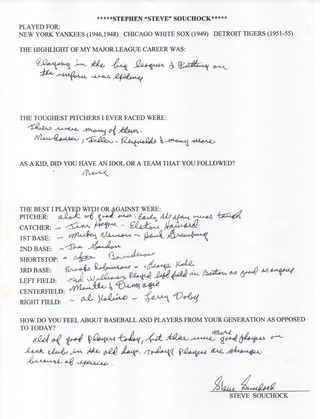 *****STEPHEN "STEVE" SOUCHOCK*****
PLAYED FOR:
NEW YORK YANKEES (1946,1948) CHICAGO WHITE SOX (1949) DETROIT TIGERS (1951-55)
THE HIGHLIGHT OF MY MAJOR LEAGUE CAREER WAS:
Playing in the big leagues & Putting on
the uniform was
THE TOUGHEST PITCHERS I EVER FACED WERE:
There were many of them.
Newhouser, Feller - Reynolds & many more
AS A KID, DID YOU HAVE AN IDOL OR A TEAM THAT YOU FOLLOWED?
None
THE BEST I PLAYED WITH OR AGAINST WERE:
PITCHER: alot of good ones. Early Wynn was tough
CATCHER: - Jim Hegan - Elston Howard
1ST BASE: - Mickey Vernon - Hank Greenburg
2ND BASE: - Joe Gordon
SHORTSTOP: - Boudreau
3RD BASE: Brooks Robinson - George Kell
LEFT FIELD: Ted Williams Played left field in Boston as good as anyone
CENTERFIELD: Mantle & Dimagio
RIGHT FIELD: - Al Kaline - Larry Doby
HOW DO YOU FEEL ABOUT BASEBALL AND PLAYERS FROM YOUR GENERATION AS OPPOSED
TO TODAY?
of good players today, but there were more good players on
each club in the old days. Todays players are stronger
because of
Steve Souchock
STEVE SOUCHOCK